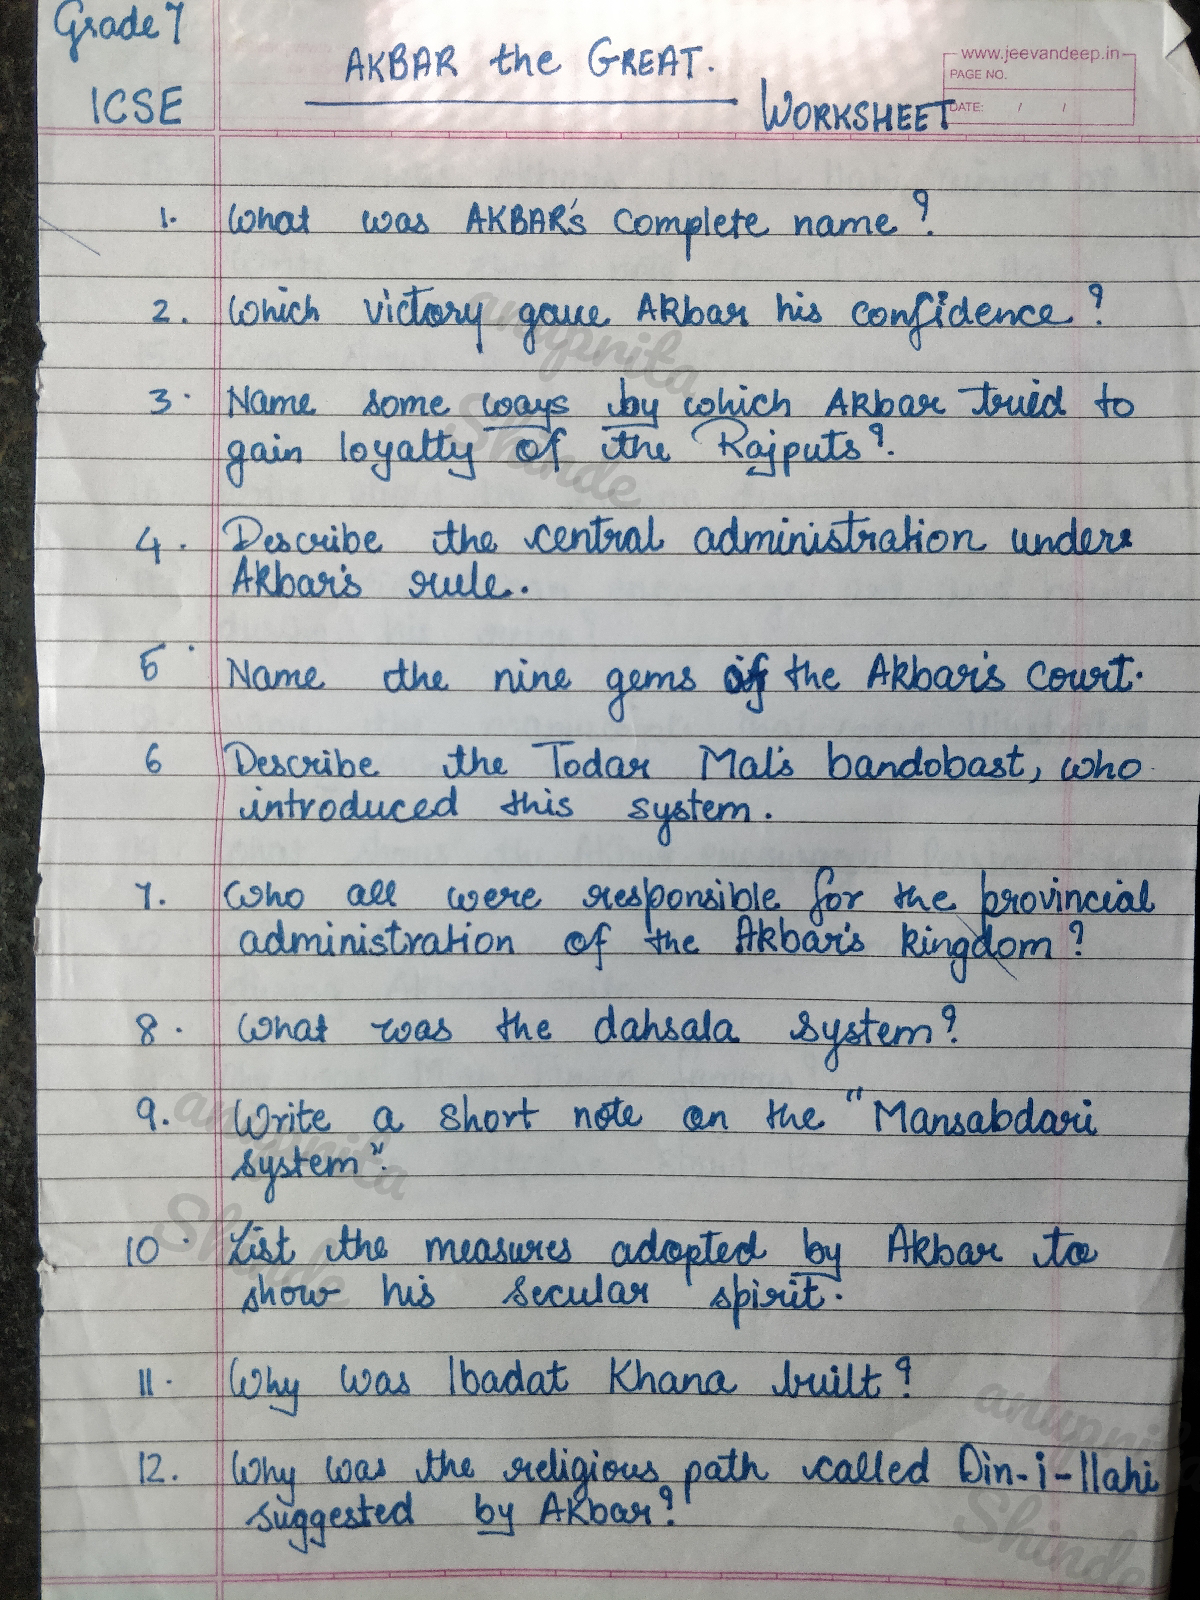 Grade 7
ICSE
AKBAR the GREAT.
WORKSHEET
www.jeevandeep.in
PAGE NO.
DATE: / /
1. What was AKBAR's complete name?
2. Which victory gave Akbar his confidence?
3. Name some ways by which Akbar tried to
gain loyalty of the Rajputs?
4. Describe the central administration under
Akbar's rule.
5. Name the nine gems of the Akbar's court.
6 Describe the Todar Mal's bandobast, who
introduced this system.
7. Who all were responsible for the provincial
administration of the Akbar's kingdom?
8. What was the dahsala system?
9. Write a short note on the "Mansabdari
system".
10. List the measures adopted by Akbar to
show his secular spirit.
11. Why was Ibadat Khana built?
12. Why was the religious path called Din-i-Ilahi
suggested by Akbar?
anupnita
Shinde
anupnita
Shinde
anupni
Shinde